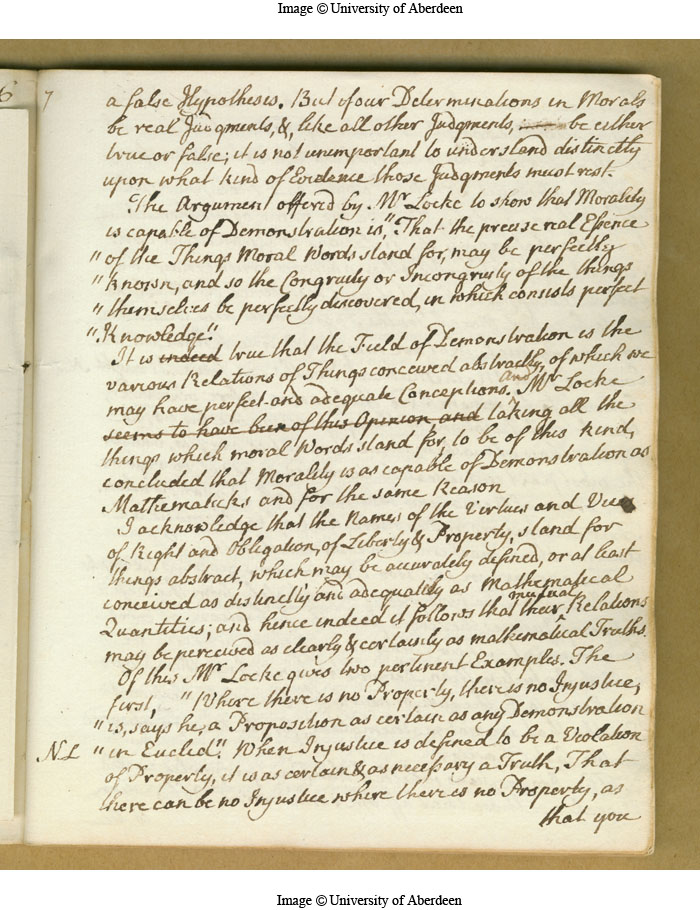 Image © University of Aberdeen
6
7
a false Hypotheses. But if our Determinations in Morals
be real Judgments, &, like all other Judgments, be either
true or false; it is not unimportant to understand distinctly
upon what kind of Evidence those Judgments must rest.
The Argument offered by Mr Locke to show that Morality
is capable of Demonstration is, "That the precise real Essence
" of the Things Moral Words stand for, may be perfectly
" known, and so the Congruity or Incongruity of the things
" themselves be perfectly discovered, in which consists perfect
" Knowledge".
It is indeed true that the Field of Demonstration is the
various Relations of Things conceived abstractly, of which we
may have perfect and adequate Conceptions. And Mr Locke
seems to have been of this Opinion, and taking all the
things which moral Words stand for, to be of this kind,
concluded that Morality is as capable of Demonstration as
Mathematicks and for the same Reason
I acknowledge that the Names of the Virtues and Vices
of Right and Obligation, of Liberty & Property, stand for
things abstract, which may be accurately defined, or at least
conceived as distinctly and adequately as Mathematical
Quantities; and hence indeed it follows that their mutual Relations
may be perceived as clearly & certainly as mathematical Truths.
Of this Mr Locke gives two pertinent Examples. The
first, "Where there is no Property, there is no Injustice,
" is, says he, a Proposition as certain as any Demonstration
NL " in Euclid". When Injustice is defined to be a Violation
of Property, it is as certain & as necessary a Truth, That
there can be no Injustice where there is no Property, as
that you
Image © University of Aberdeen